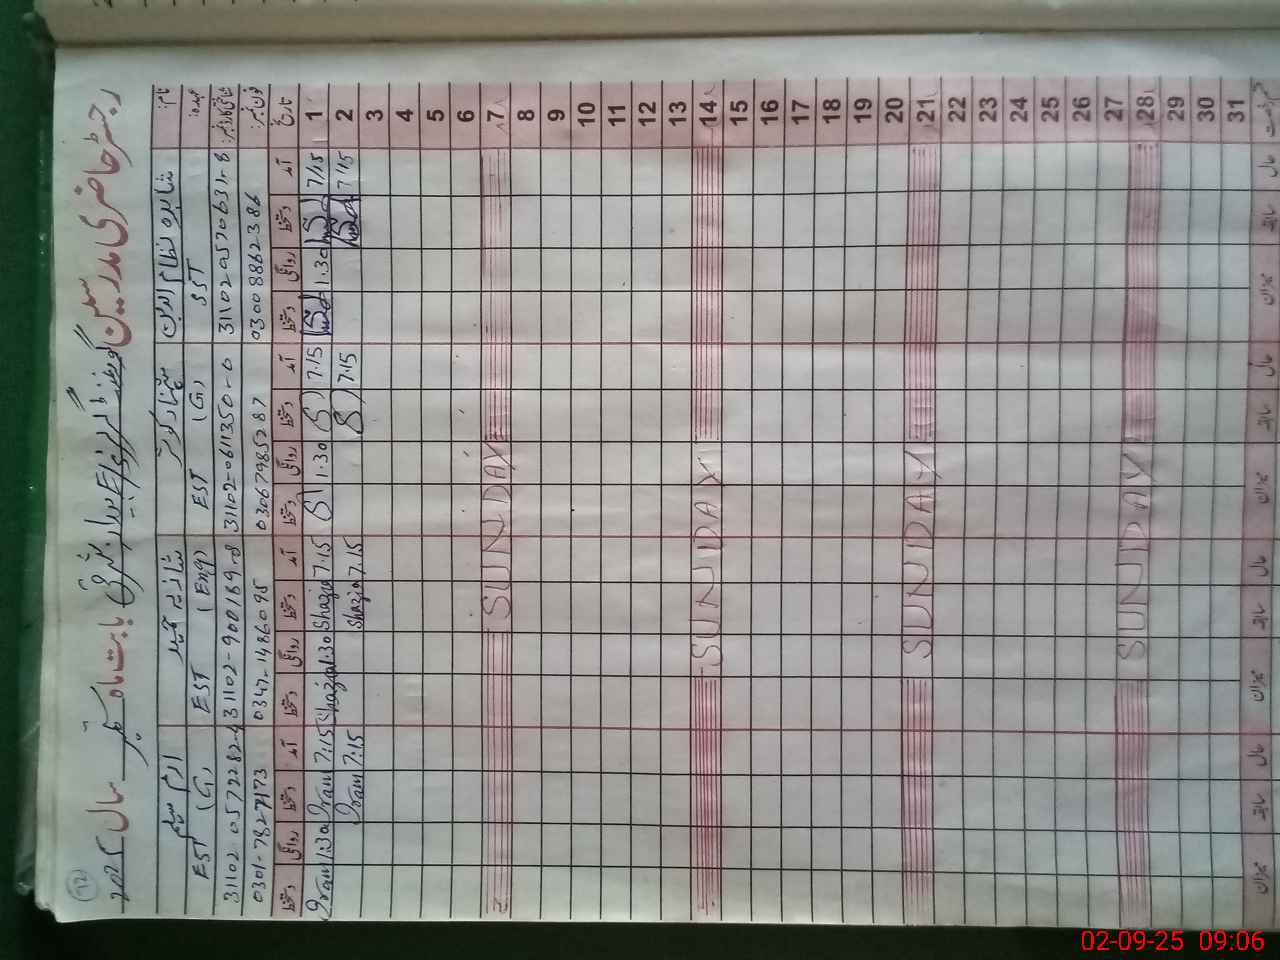 رجسٹر حاضری مدرسین گورنمنٹ گرلز بابت ماہ ستمبر سال 2025
نام:
شاہدہ نظام الدین
شازیہ مجید
ارم سلیم
عہدہ:
SST
EST (G)
EST (Eng)
EST (G)
شناختی کارڈ نمبر:
31102-0611350-0
31102-900189-8
فون نمبر:
03008862386
03067985287
0347-1486095
0301-7827173
تاریخ آمد دستخط روانگی دستخط آمد دستخط روانگی دستخط آمد دستخط روانگی دستخط آمد دستخط روانگی دستخط
1 7/15 1.30 7.15 1.30 7.15 Shazia 1.30 Shazia 7:15 Iram 1:30 Iram
2 7/15 7.15 7.15 Shazia 7:15 Iram
3
4
5
6
7 SUNDAY
8
9
10
11
12
13
14 SUNDAY
15
16
17
18
19
20
21 SUNDAY
22
23
24
25
26
27
28 SUNDAY
29
30
31
حال سابقہ میزان حال سابقہ میزان حال سابقہ میزان حال سابقہ میزان
02-09-25 09:06